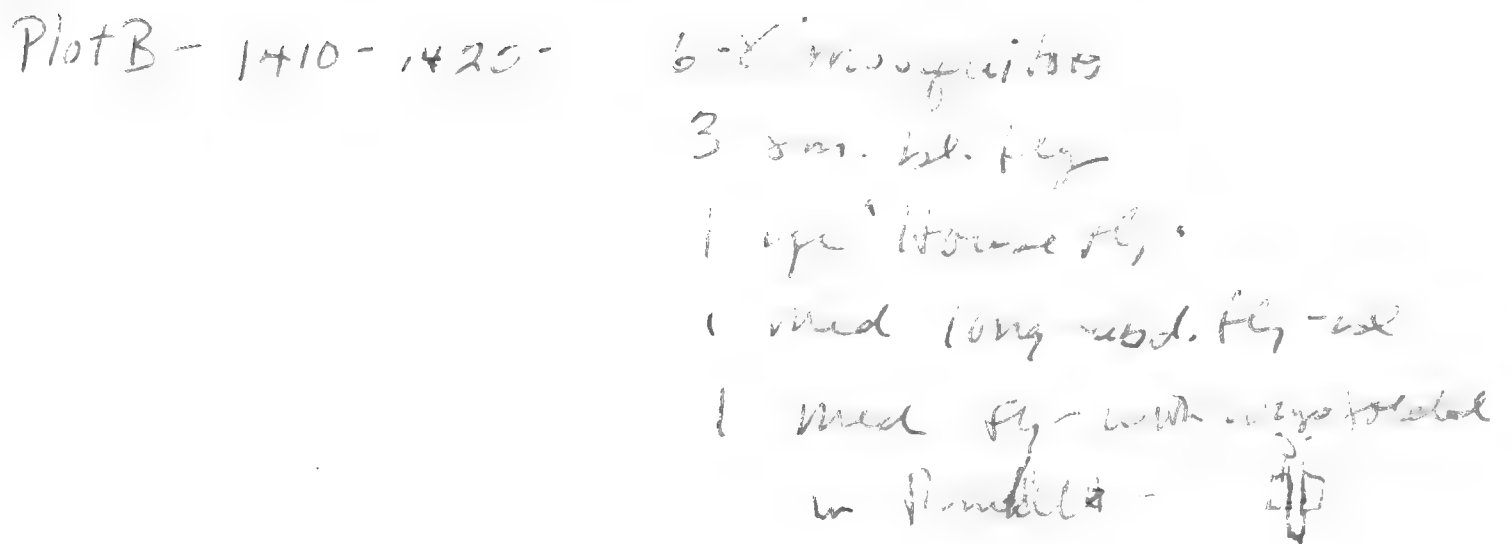 Plot B - 1410 - 1420 - 6-8 mosquitoes
3 sm. bl. fly
1 lge "House fly"
1 med long abd. fly -
1 med fly - with wings folded
in